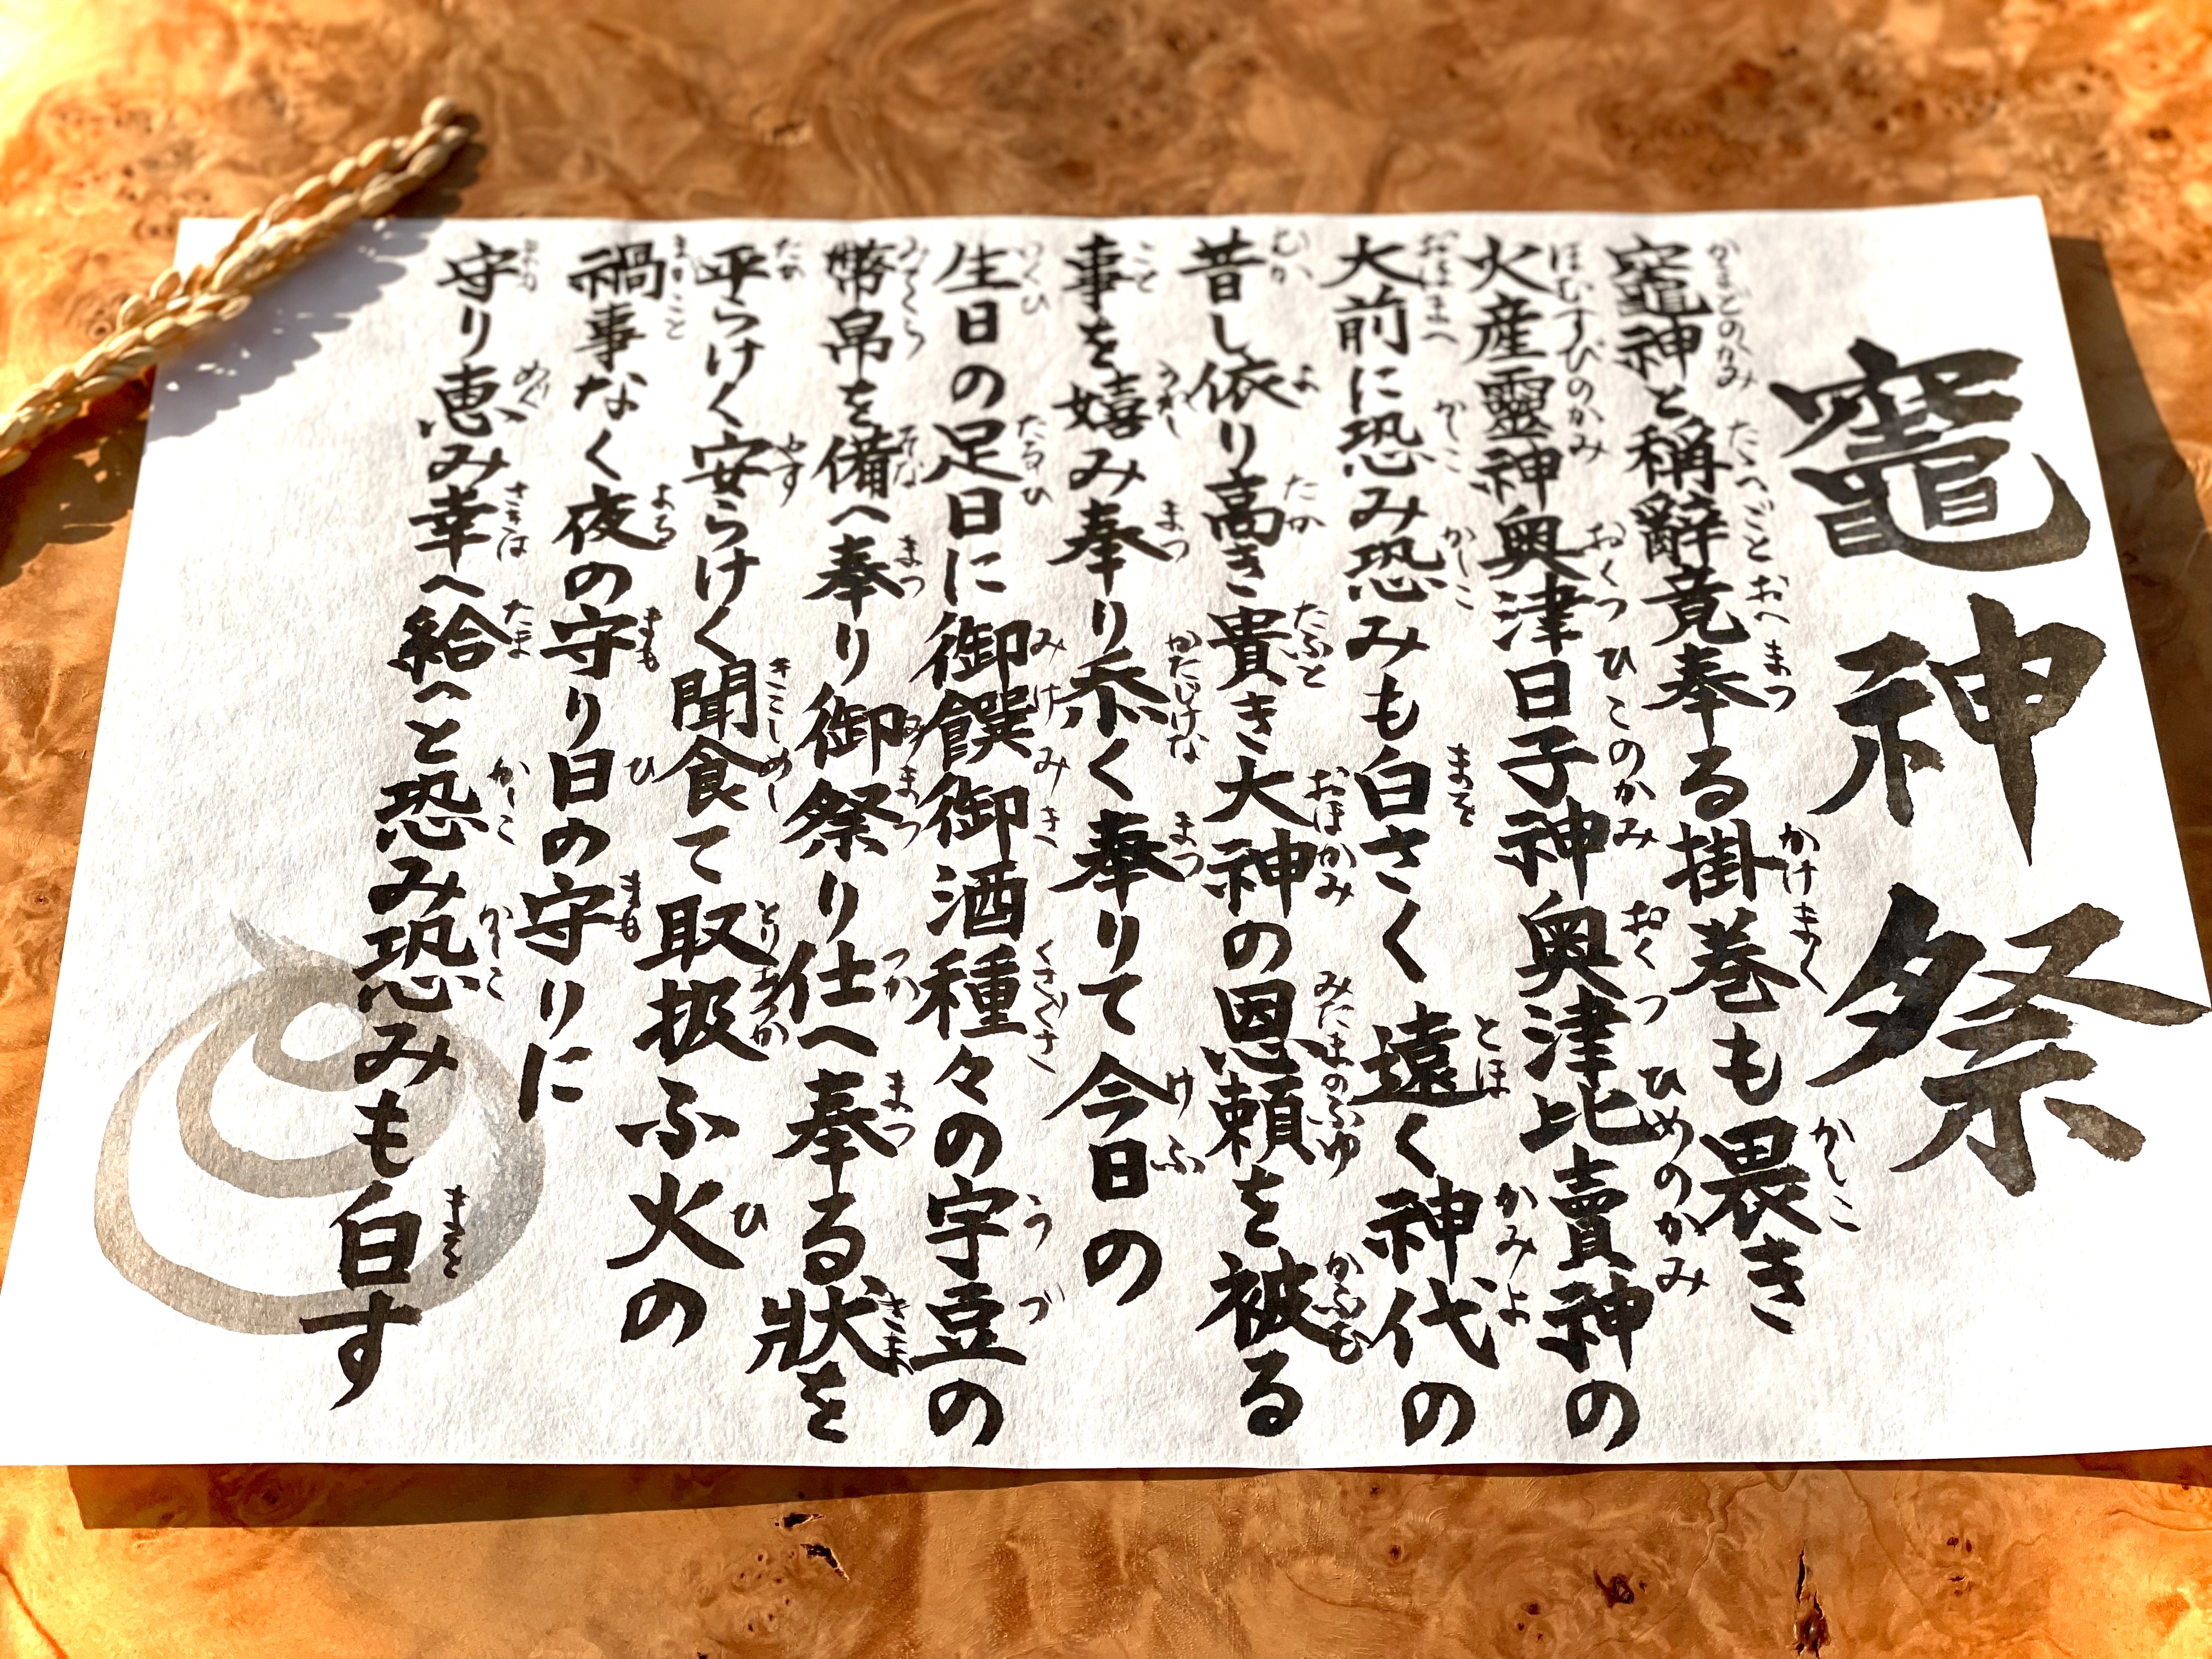 竈神祭
竈神と稱辭竟奉る掛巻も畏き
火産靈神奥津日子神奥津比賣神の
大前に恐み恐みも白さく遠く神代の
昔し依り高き貴き大神の恩頼を被る
事を嬉み奉り忝く奉りて今日の
生日の足日に御饌御酒種々の宇豆の
幣帛を備へ奉り御祭り仕へ奉る狀を
平らけく安らけく聞食て取扱ふ火の
禍事なく夜の守り日の守りに
守り恵み幸へ給へと恐み恐みも白す